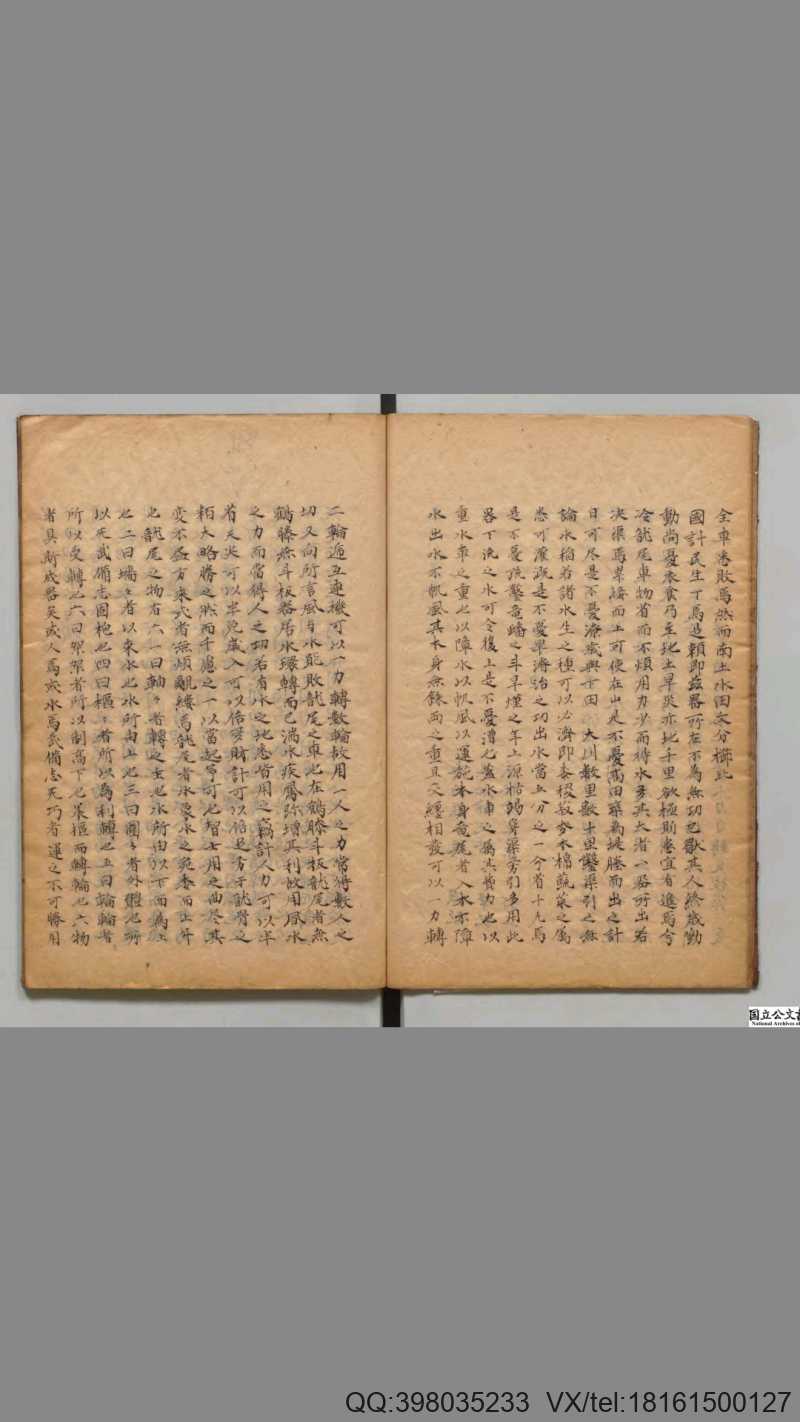 全車悉敗焉然而南土水田支分櫛比
國計民生于焉是賴即茲器所在不為無功已獨其人終歲勤
動尚憂衣食乃至北土旱災赤地千里欲極斯患宜有進焉今
冷龍尾車物省而不煩用力少而得水多其大者一器所出若
決渠焉累接而上可使在山是不憂高田築為堤塍而出之計
日可尽是不憂潦歲與下田大川數里數十里鑿渠引之無
論水稻若諸水生之種可以必濟即黍稷菽麥木棉蔬菜之屬
悉可灌溉是不憂旱濬治之功出水當五分之一今省十九焉
是不憂疏鑿龍蟠之斗旱熯之年上源枯竭穿渠旁引多用此
器下流之水可令復上是不憂漕也蓋水車之屬其費力也以
重水車之重也以障水以帆風以運旋本身龍尾者入水不障
水出水不帆風其本身無銖両之重且交纏相發可以一力轉
二輪遞互連機可以一力轉數輪故用一人之力常得數人之
切又向所言風与水能敗龍尾之車也在鶴膝斗板龍尾者無
鶴膝無斗板器居水環轉而已湍水疾風弥增其利故用風水
之力而當得人之功若有水之地悉皆用之竊計人力可以半
省天災可以半免歲入可以倍多財計可以倍足方于龍骨之
大略勝之然而千慮之一以當起予可也智士用之曲尽其
变不尽方來或者無煩覼縷焉龍尾者水象水之宛委而上升
也龍尾之物有六一曰軸々者轉之主也水所由以下而為上
也二曰墻々者以束水也水所由上也三曰圍々者外體也所
以武備志固抱也四曰樞々者所以為利轉也五曰輪輪者
所以受轉也六曰架架者所以制高下也承樞而轉輪也六物
者具斯成器矣或人焉或水焉武備志巧者運之不可勝用
国立公文
National Archives of
QQ:398035233 VX/tel:18161500127